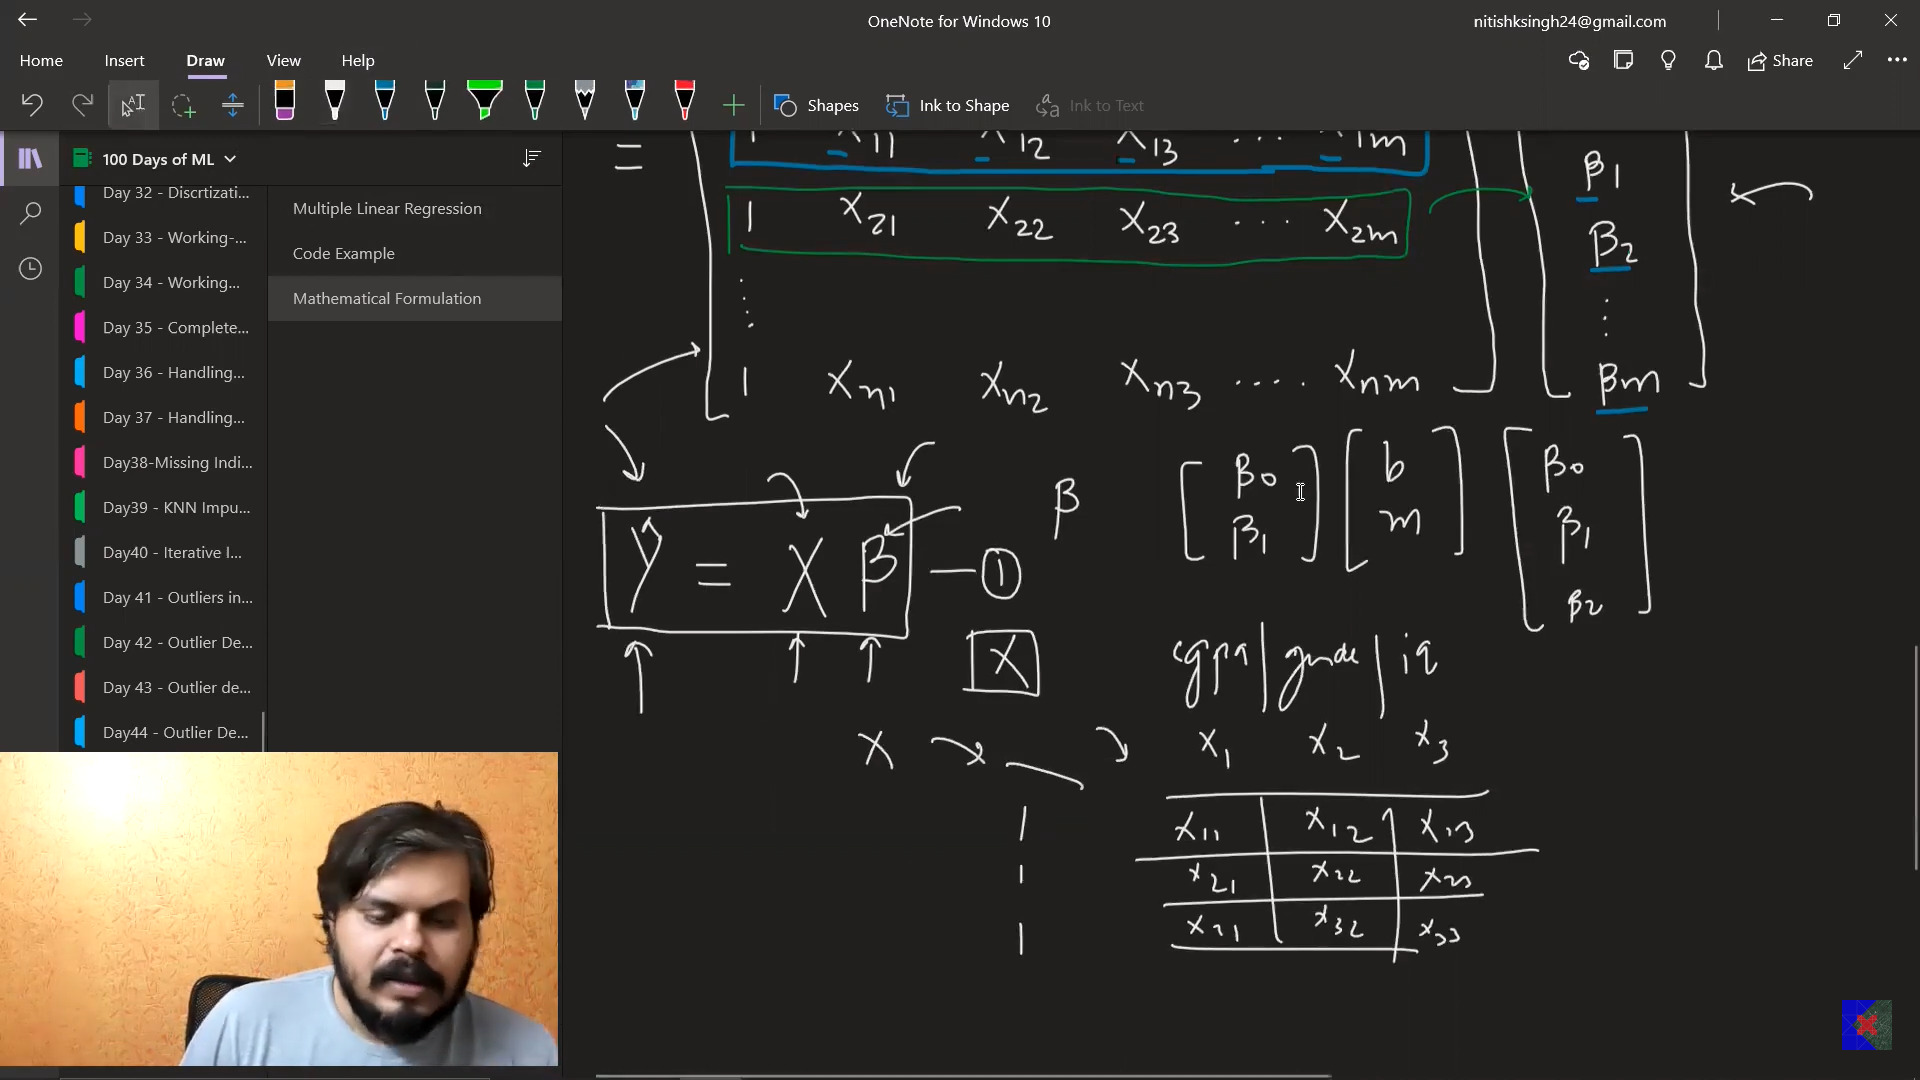 OneNote for Windows 10
nitishksingh24@gmail.com
Home Insert Draw View Help
Share
Shapes Ink to Shape Ink to Text
100 Days of ML
Day 32 - Discrtizati...
Day 33 - Working-...
Day 34 - Working...
Day 35 - Complete...
Day 36 - Handling...
Day 37 - Handling...
Day38-Missing Indi...
Day39 - KNN Impu...
Day40 - Iterative I...
Day 41 - Outliers in...
Day 42 - Outlier De...
Day 43 - Outlier de...
Day44 - Outlier De...
Multiple Linear Regression
Code Example
Mathematical Formulation
= 1 x11 x12 x13 ... x1m β1
1 x21 x22 x23 ... x2m β2
1 xn1 xn2 xn3 .... xnm βm
β β0 b β0
β1 m β1
β2
Y = X β — ①
X
cgpa | gender | iq
X x1 x2 x3
1 x11 x12 x13
1 x21 x22 x23
1 x31 x32 x33